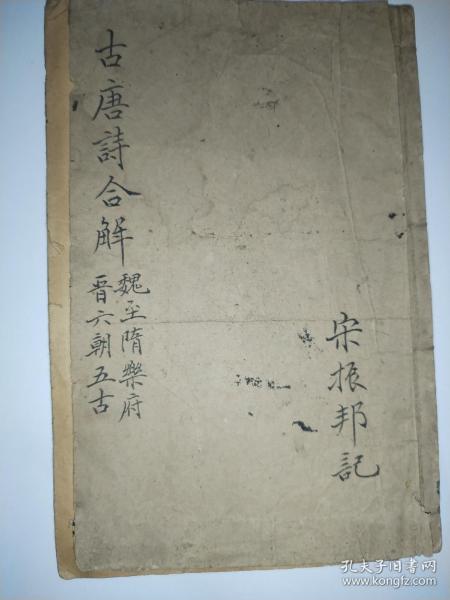 古唐詩合觧
魏至隋樂府
晋六朝五古
宋振邦記
孔夫子旧书网
www.kongfz.com